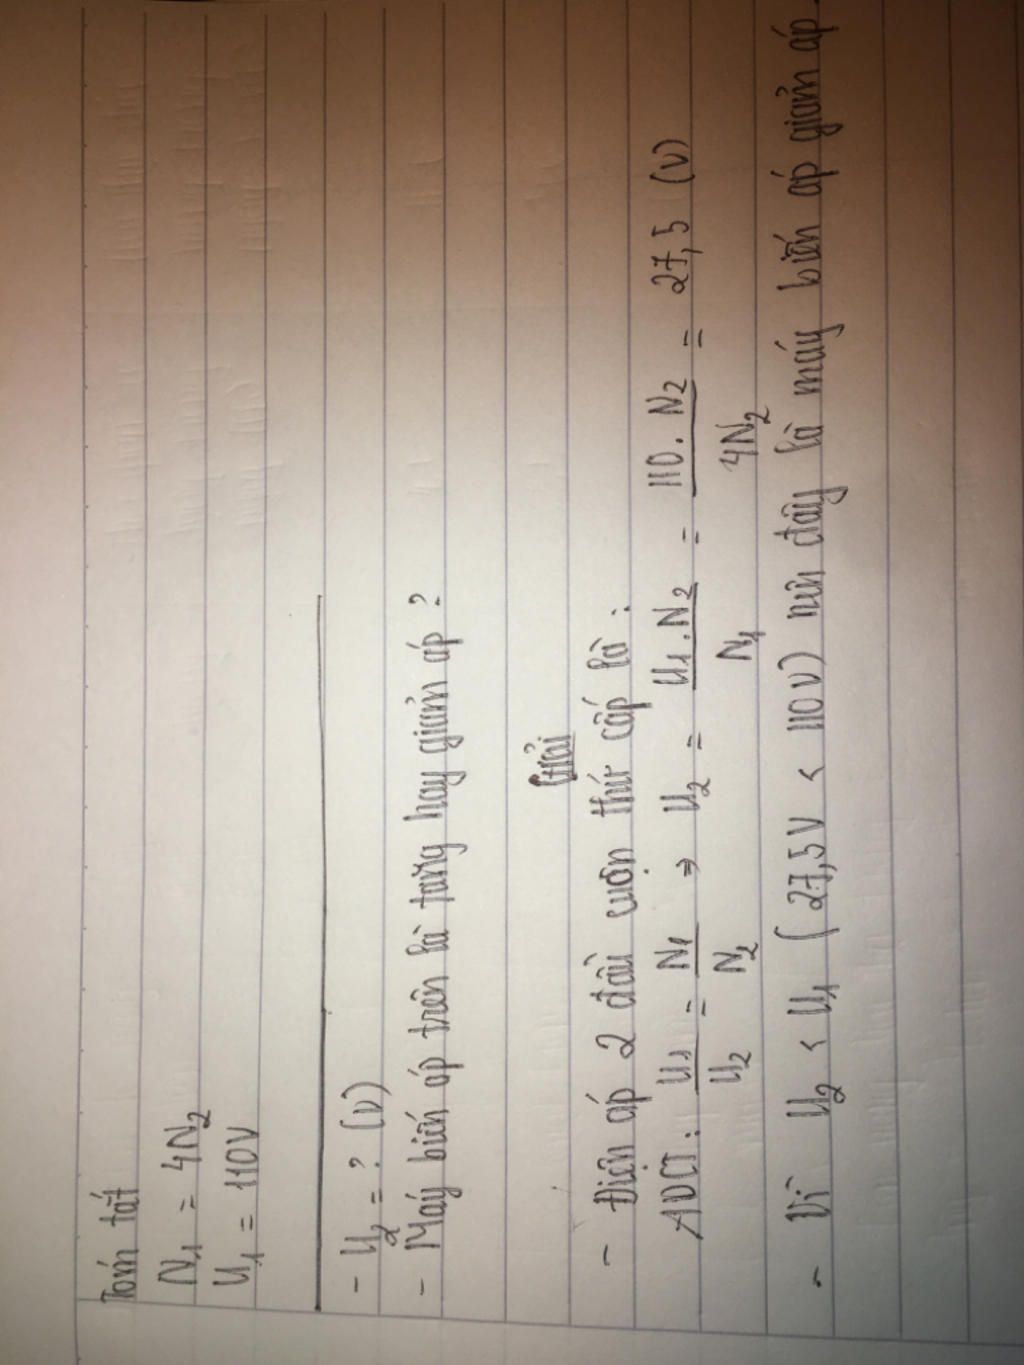 Tóm tắt
N₁ = 4N₂
U₁ = 110V
- U₂ = ? (V)
- Máy biến áp trên là tăng hay giảm áp ?
Giải
- Điện áp 2 đầu cuộn thứ cấp là :
ADCT : U₁/U₂ = N₁/N₂ ⇒ U₂ = U₁.N₂/N₁ = 110.N₂/4N₂ = 27,5 (V)
- Vì U₂ < U₁ ( 27,5V < 110V) nên đây là máy biến áp giảm áp.